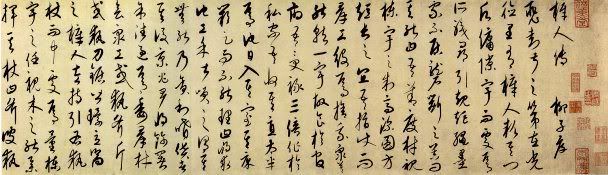 梓人傳 柳子厚
裴封叔之第在光
德里有梓人款其門
願傭隙宇而處焉
所職尋引規矩繩墨
家不居礱斲之器問
其能曰吾善度材視
棟宇之制高深圓方
短長之宜吾指使而
群工役焉捨我眾莫
能就一宇故食於官
府吾受祿三倍作於
私家吾收其直太半
焉他日入其室其床
闕足而不能理曰將求
他工余甚笑之謂其
無能而貪祿嗜貨者
其後京兆尹將飾官署
余往過焉委群材
會眾工或執斧斤
或執刀鋸皆環立嚮
之梓人左持引右執
杖而中處焉量棟
宇之任視木之能舉
揮其杖曰斧彼執